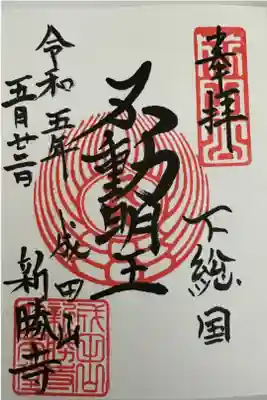 奉拝
下総国
不動明王
成田山
新勝寺
令和五年
五月廿二日
成田山